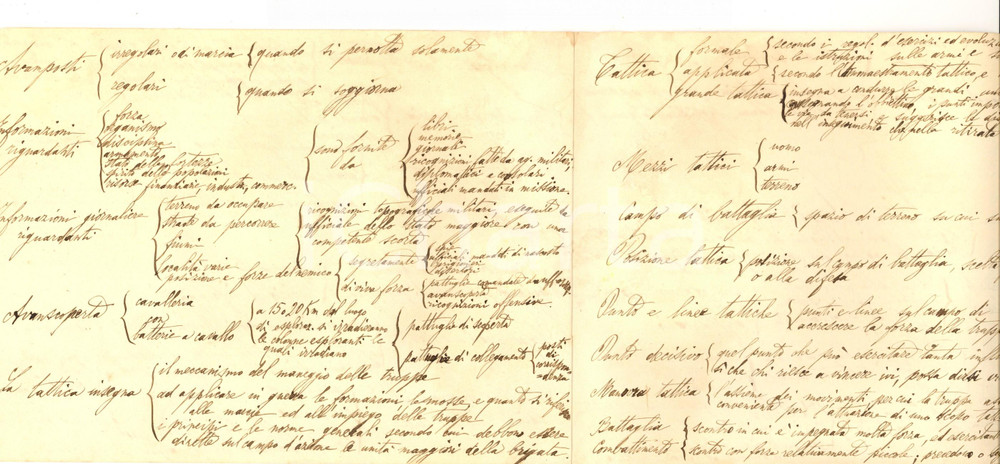 Avamposti
irregolari o di marcia
quando si pernotta solamente
regolari
quando si soggiorna
Informazioni
riguardanti
forza
organismo
disciplina
armamento
stato delle fortezze
spirito delle popolazioni
risorse finanziarie, industr., commerc.
sono fornite
da
libri
memorie
giornali
ricognizioni fatte da ag. militari,
diplomatici e consolari
ufficiali mandati in missione
Informazioni giornaliere
riguardanti
terreno da occupare
strade da percorrere
fiumi
località varie
posizione e forze del nemico
ricognizioni topografiche militari, eseguite da
ufficiale dello Stato maggiore con una
competente scorta
segretamente
di viva forza
spie
pattuglie comandate da ufficiali
avanscoperta
ricognizioni offensive
Avanscoperta
cavalleria
con
batterie a cavallo
a 15 o 20 Km dal luogo
di esplora. si irradieranno
le colonne esploranti le
quali inviano
pattuglie di scoperta
pattuglie di collegamento
posti
di
corrispon-
denza
La tattica insegna
il meccanismo del maneggio delle truppe
ad applicare in guerra le formazioni, le mosse, e quanto si riferisce
alle marcie ed all'impiego delle truppe
i principi e le norme generali secondo cui debbono essere
dirette sul campo d'azione le unità maggiori della brigata.
Tattica
formale
secondo i regol. d'esercizi ed evoluz.
e le istruzioni sulle armi e
applicata
secondo l'ammaestramento tattico, e
grande tattica
insegna a condurre le grandi
assegnando l'obbiettivo, i punti
suggerisce il
nell'inseguimento che nella ritirata
Mezzi tattici
uomo
armi
terreno
Campo di battaglia
spazio di terreno su cui
Posizione tattica
posizione sul campo di battaglia, scelta
o alla difesa
Punto e linee tattiche
punti e linee sul campo di
accrescere la forza della truppa
Punto decisivo
quel punto che può esercitare tanta
sì che chi riesce a vincere ivi, possa dirsi
Manovra tattica
l'assieme dei movimenti per cui la truppa
conveniente per l'attuazione di uno stesso
Battaglia
scontro in cui è impegnata molta forza, ed esercitante
Combattimento
scontro con forza relativamente piccole; prendono